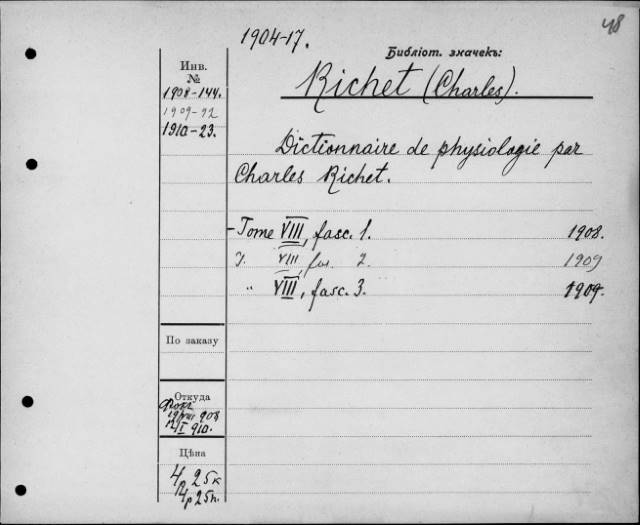 48
1904-17.
Библіот. значекъ:
Инв.
№
1908-144.
1909-92
1910-23.
Richet (Charles).
Dictionnaire de physiologie par
Charles Richet.
- Tome VIII, fasc. 1. 1908.
T. VIII, fas. 2. 1909
" VIII, fasc. 3. 1909.
По заказу
Откуда
908
I 910.
Цѣна
4р 25к
4р 25к.